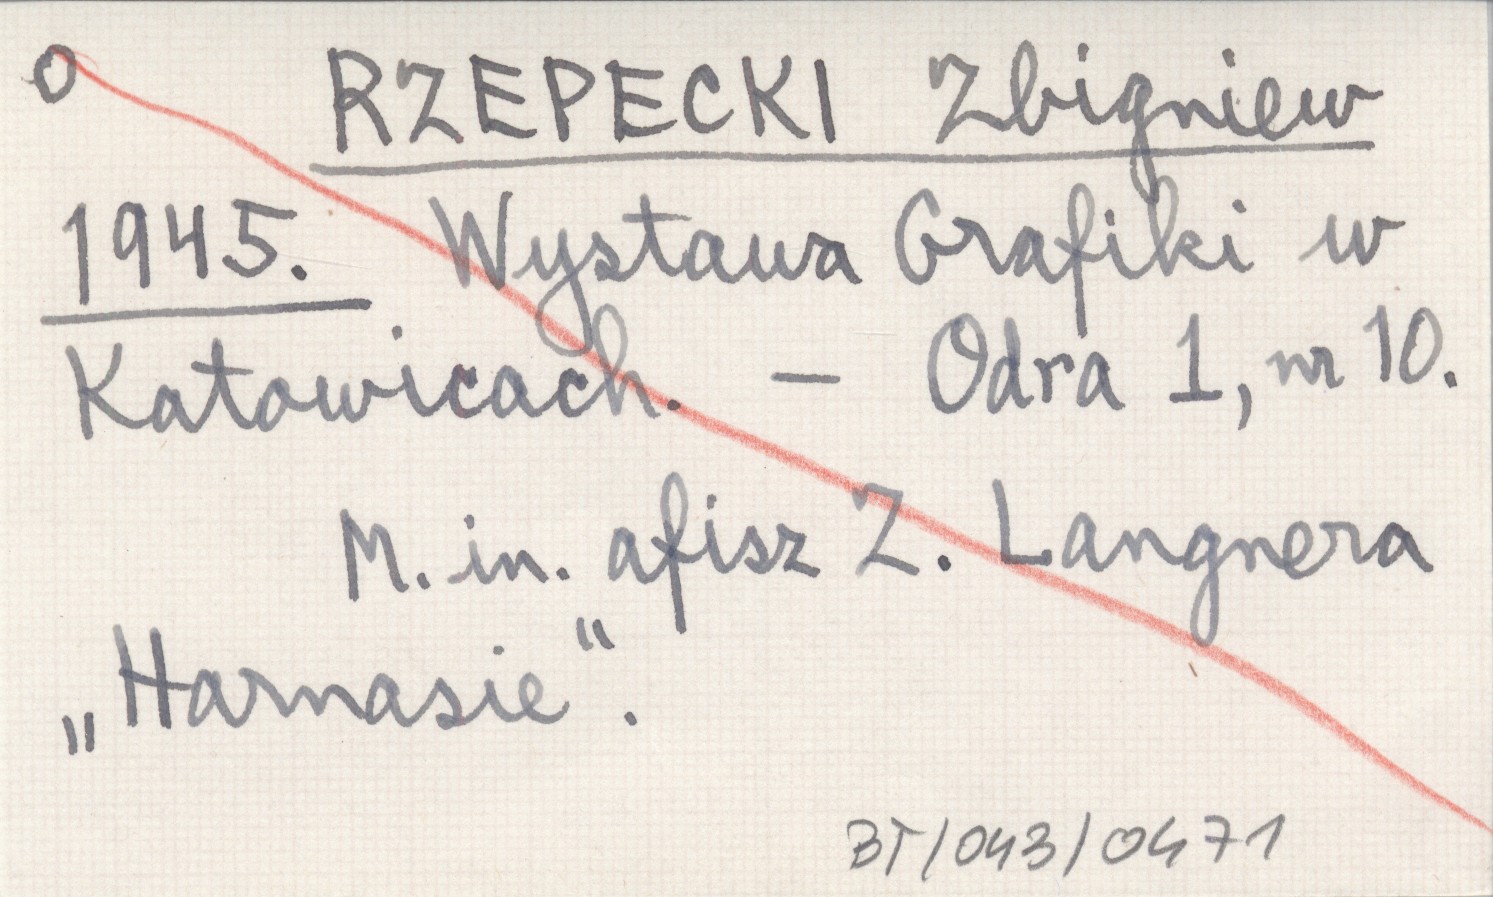 O RZEPECKI Zbigniew
1945. Wystawa Grafiki w
Katowicach. — Odra 1, nr 10.
M. in. afisz Z. Langnera
„Harnasie".
BT/043/0471